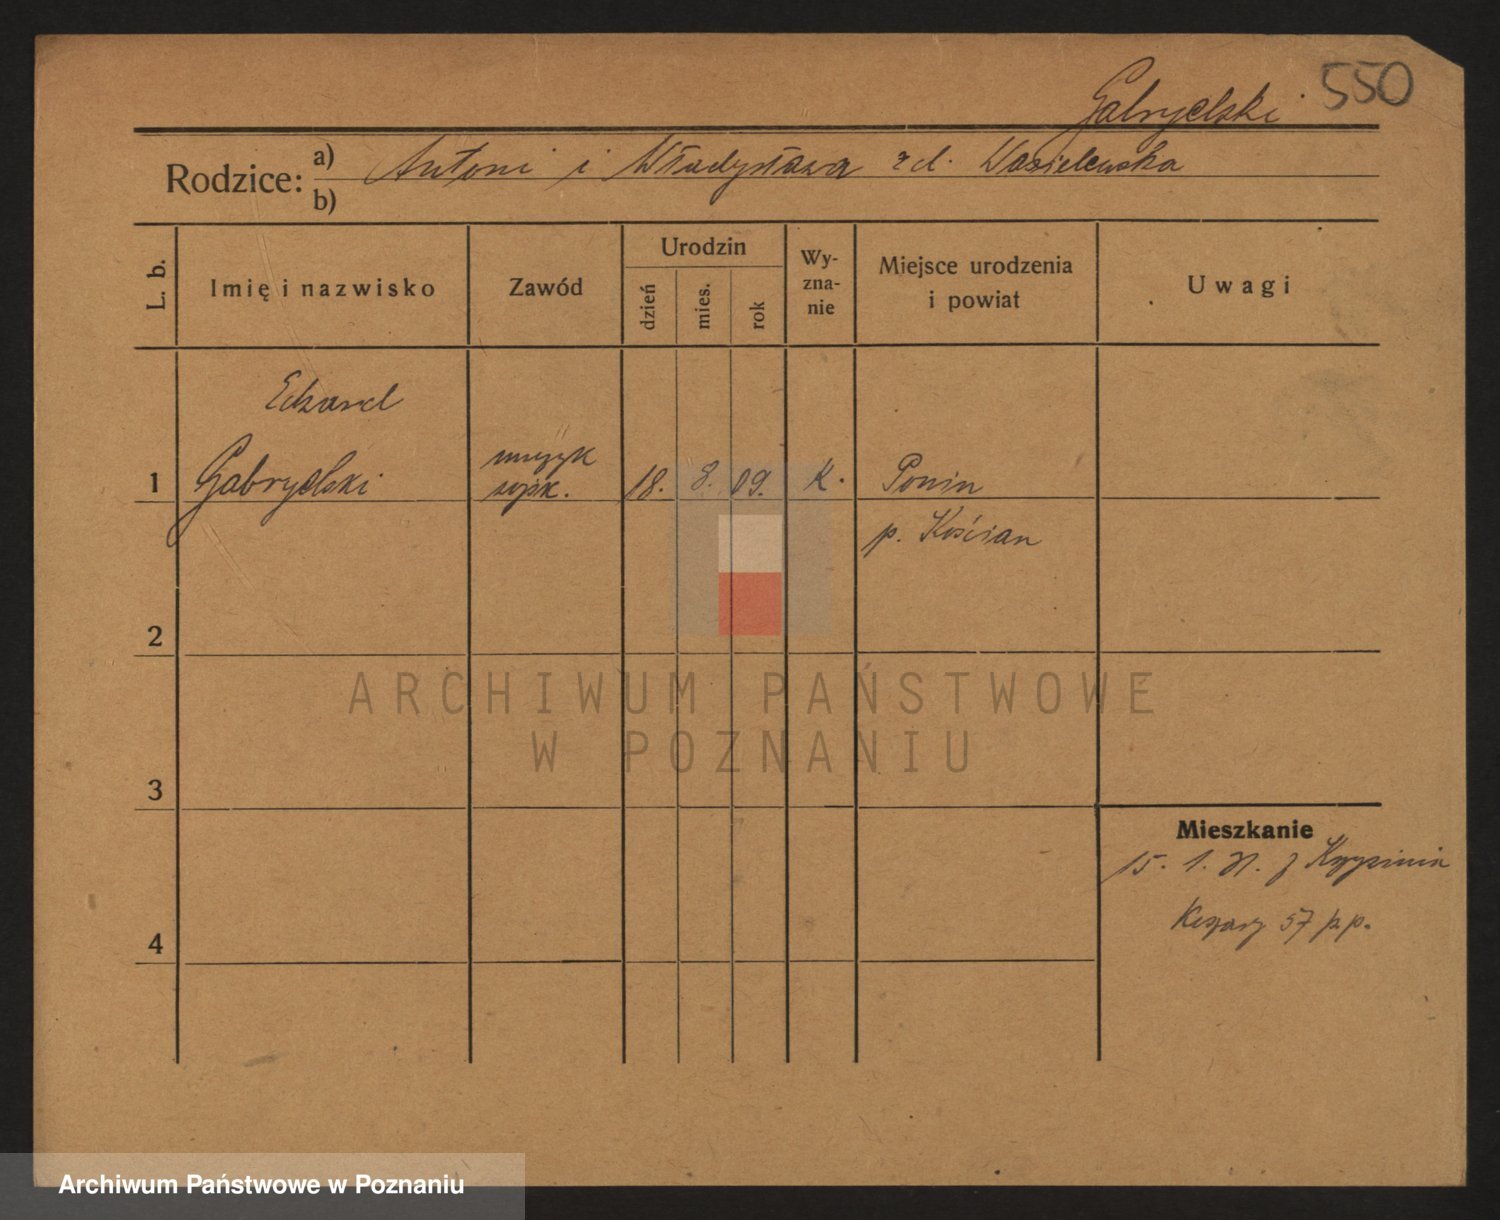 Gabryelski 550
Rodzice: a) Antoni i Władysława zd. Wasielewska
b)
L. b. Imię i nazwisko Zawód Urodzin dzień mies. rok Wy-zna-nie Miejsce urodzenia i powiat Uwagi
Edward
1 Gabryelski muzyk wojsk. 18. 8. 09. K. Ponin
p. Kościan
2
ARCHIWUM PAŃSTWOWE
W POZNANIU
3
Mieszkanie
15. 1. 31. z
4 57 p.p.
Archiwum Państwowe w Poznaniu